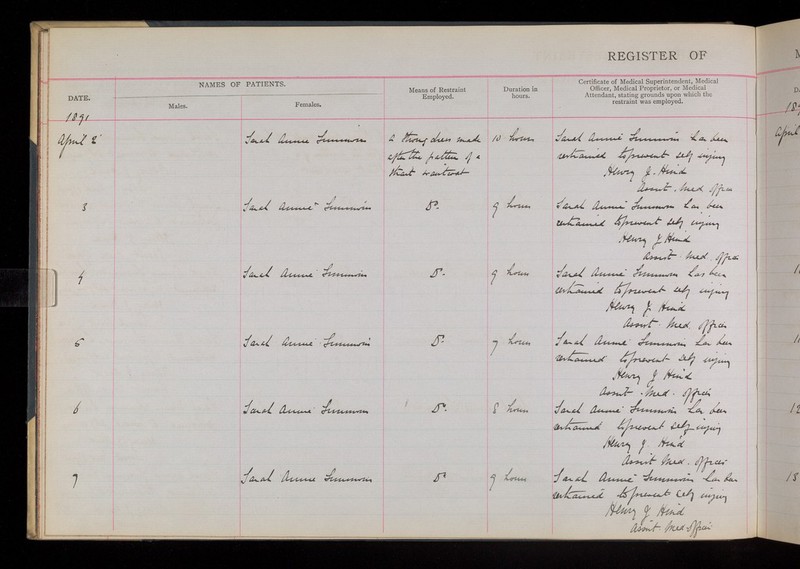 REGISTER OF
DATE.
NAMES OF PATIENTS.
Males.
Females.
Means of Restraint
Employed.
Duration in
hours.
Certificate of Medical Superintendent, Medical
Officer, Medical Proprietor, or Medical
Attendant, stating grounds upon which the
restraint was employed.
1891
April 2
Sarah Annie Simmons
a strong dress made
after the pattern of a
strait waistcoat
10 hours
Sarah Annie Simmons has been
restrained to prevent self injury
Henry J. Hind
Assist. Med Officer
3
Sarah Annie Simmons
Do.
9 hours
Sarah Annie Simmons has been
restrained to prevent self injury
Henry J Hind
Assist. Med. Officer
4
Sarah Annie Simmons
Do.
9 hours
Sarah Annie Simmons has been
restrained to prevent self injury
Henry J. Hind
Assist. Med. Officer
5
Sarah Annie Simmons
Do.
7 hours
Sarah Annie Simmons has been
restrained to prevent self injury
Henry J Hind
Assist. Med. Officer
6
Sarah Annie Simmons
Do.
8 hours
Sarah Annie Simmons has been
restrained to prevent self injury
Henry J. Hind
Assist Med. Officer
7
Sarah Annie Simmons
Do
9 hours
Sarah Annie Simmons has been
restrained to prevent self injury
Henry J Hind
Assist Med Officer